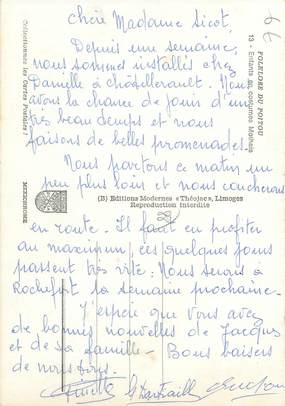 Chère Madame Sicot,
Depuis une semaine,
nous sommes installés chez
Danielle à châtellerault. Nous
avons la chance de jouir d'un
très beau temps et nous
faisons de belles promenades.
Nous partons ce matin un
peu plus loin et nous coucherons
en route. Il faut en profiter
au maximum, ces quelques jours
passent très vite. Nous serons à
Rochefort la semaine prochaine.
J'espère que vous avez
de bonnes nouvelles de Jacques
et de sa famille - Bons baisers
de nous tous.
FOLKLORE DU POITOU
13 - Enfants en costumes
Sélectionnez les Cartes Postales !
MEXICHROME
(B) Editions Modernes « Théojac », Limoges
Reproduction interdite